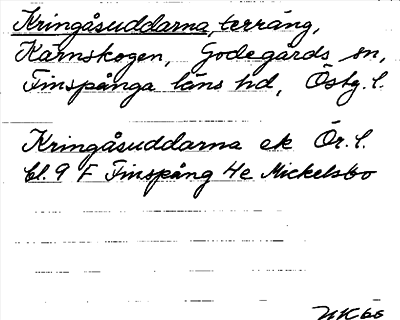 Kringåsuddarna, terräng,
Kärnskogen, Godegårds sn,
Finspånga läns hd, Östg. l.
Kringåsuddarna ek Ör. l.
bl. 9 F Finspång 4e Mickelsbo